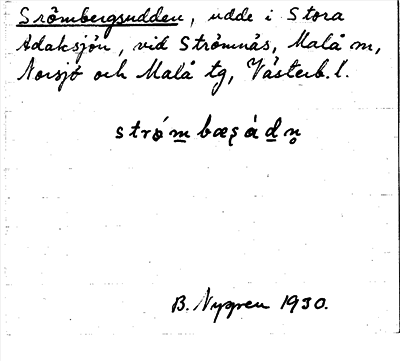 Srömbergsudden, udde i Stora
Adaksjön, vid Strömnäs, Malå m,
Norsjö och Malå tg, Västerb. l.
strǿm̲bæȿád̲n̥
B. Nygren 1930.